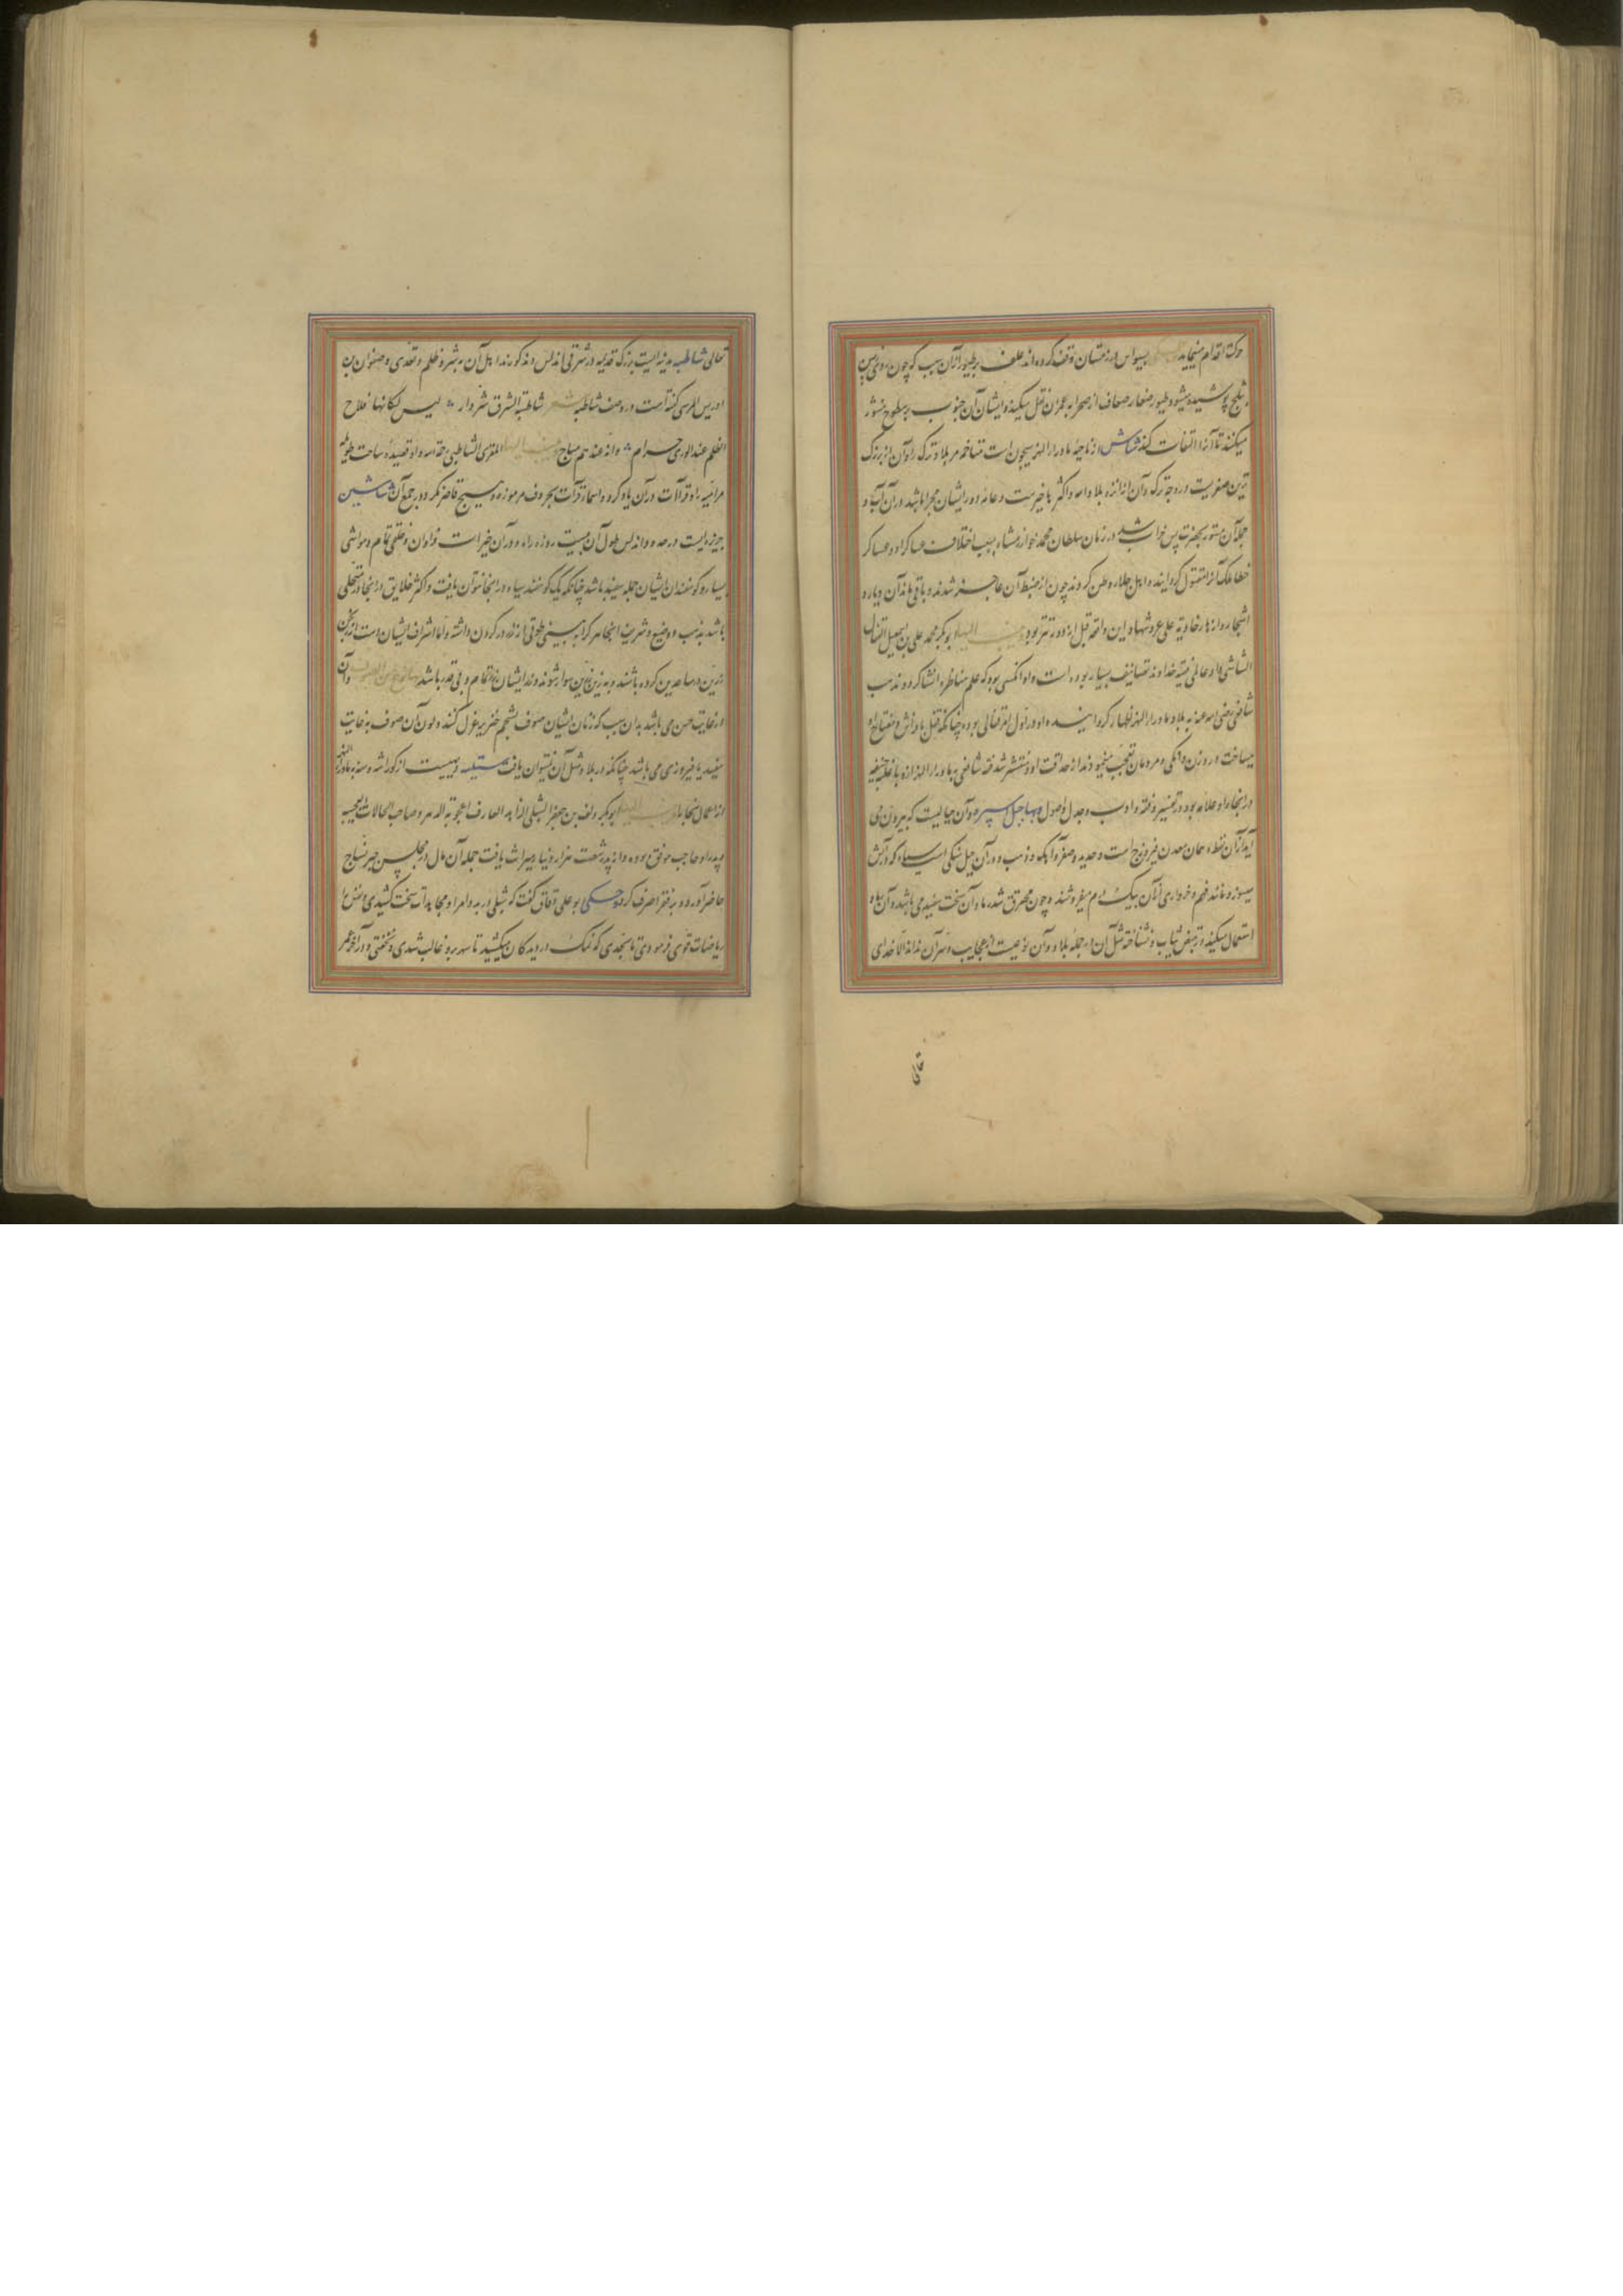 حرکة اقدام مینماید بسیواس در زمستان وقف کرده‌اند علف بر طیور ازان سبب که چون روی زمین
بثلج پوشیده میشود طیور صغار ضعاف از صحرا به عمران نقل میکنند و ایشان آن حبوب بر سطوح منثور
میکنند تا آنرا التقاط کنند شاش از ناحیهٔ ماوراء النهر سیحون است متاخم مر بلاد ترک را و آن از بزرک
ترین ثغوریست در وجه ترک و آن از انزه بلاد الله و اکثرها خیرست و عامه دور ایشان مجرا باشد در آن آب و
جملهٔ آن مستور بخضرت پس خراب شد در زمان سلطان محمد خوارزمشاه بسبب اختلاف عساکر او و عساکر
خطا ملک آنرا مقتول کردانیده و اهل جلاء وطن کردند چون از ضبط آن عاجز شدند و باقی ماند آن دیار و
اشجار و انهار خاویة علی عروشها و این واقعه قبل از ورود تتر بود ینسب الیها ابوبکر محمد علی بن اسمعیل القفال
الشاشی و او عالمی فقیه خداوند تصانیف بسیار بوده است و او انکسی بود که علم مناظره انشا کرد و مذهب
شافعی رضی الله عنه به بلاد ماوراء النهر اظهار کردانیده و او در اول امر قفالی بوده چنانکه قفل با و فراش و مفتاح او
میساخت در وزن دانکی و مردمان تعجب مینمودند از حذاقت او و منتشر شد فقه شافعی به ماوراء النهر از و با غلبه حنفیه
در انجا و او علامه بود در تفسیر و فقه و ادب و جدل و اصول و بها جبل اسبره و آن جبالیست که بیرون می
آید از آن نفط و همان معدن فیروزج است و حدید و صفر و آنک و ذهب و در آن جبل سنکی است سیاه که در آتش
میسوزد مانند فحم و خرواری از آن بیک درم میفروشند و چون محترق شد رماد آن سخت سفید می باشد و آن بلاد
استعمال میکنند در تبییض ثیاب و نشناخته مثل آن در جملهٔ بلاد و آن نوعیست از عجایب و سر آن نداند الا خدای
تعالی
تعالی شاطبه مدینه ایست بزرک قدیمه در شرقی اندلس و مذکورند اهل آن به شر و ظلم و تعدی و صفوان بن
ادریس المرسی کفته است در وصف شاطبه شعر شاطبة الشرق شر دار لیس لسکانها فلاح
الظلم عند الوری حرام وانه عندهم مباح ینسب الیها المقری الشاطبی رحمة الله و او قصیدهٔ ساخت طویله
مر امیه را و قراآت در آن یاد کرد و اسماء قراءت بحروف مرموزه و هیچ قاصر نکرد در جمع آن شاشین
جزیره ایست در حدود اندلس طول آن بیست روزه راه و در آن خیرات فراوان و خلقی تمام و مواشی
بسیار و کوسفندان ایشان جمله سفید باشد چنانکه یک کوسفند سیاه در انجا نتوان یافت و اکثر خلایق در انجا متحلی
باشد بذهب و وضیع و شریف انجا هر که را به بینی طوقی از زر در کردن داشته و اما اشراف ایشان دست اورنجن
زرین در ساعدین کرده باشند و به زین زرین سوار شوند و نزد ایشان زر تمام و بی قدر باشد و آن
در غایت حسن می باشد بدان سبب که زنان ایشان صوف بشحم خنزیر غزل کنند و لون آن صوف به غایت
سفید یا فیروزی می باشد چنانکه در بلاد مثل آن نتوان یافت شبلیه دیهیست از کوراشروسنه به ماوراء النهر
از اعمال بخارا ینسب الیها ابوبکر دلف بن جعفر الشبلی الزاهد العارف اعجوبة الدهر و صاحب الحالات العجیبه
و پدر او حاجب موفق بوده و از پدر شصت هزار دینار میراث یافت جمله آن مال در مجلس خیر نساج
حاضر آورد و به فقرا صرف کرد و حکی ابو علی دقاق کفت که شبلی در بدو امر او مجاهدات سخت کشیدی و نفس را
ریاضات قوی فرمودی تا بحدی که نمک در دیدکان میکشید تا سهر برو غالب شدی و نخفتی و در آخر عمر